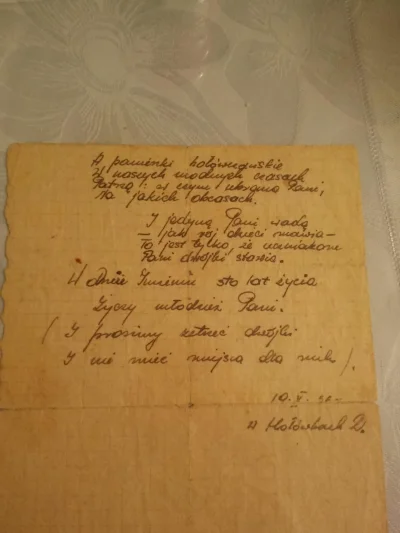 A panienki hołówczańskie
W naszych modnych czasach
Patrzą: w czym ubrana Pani,
Na jakich obcasach.
I jedyną Pani wadą
– jak rój dzieci mawia –
To jest tylko, że uczniakom
Pani dwójki stawia.
W dzień Imienin sto lat życia
Życzy młodzież Pani.
(I prosimy zetrzeć dwójki
I nie mieć miejsca dla nich).
10. V.
w Hołówkach D.